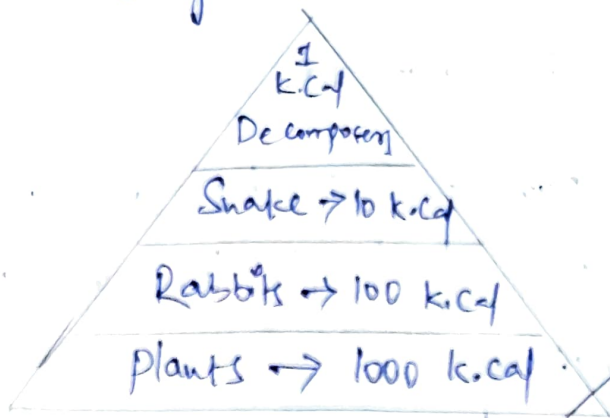 1
K.Cal
Decomposers
Snake → 10 K.Cal
Rabbits → 100 K.Cal
Plants → 1000 K.Cal